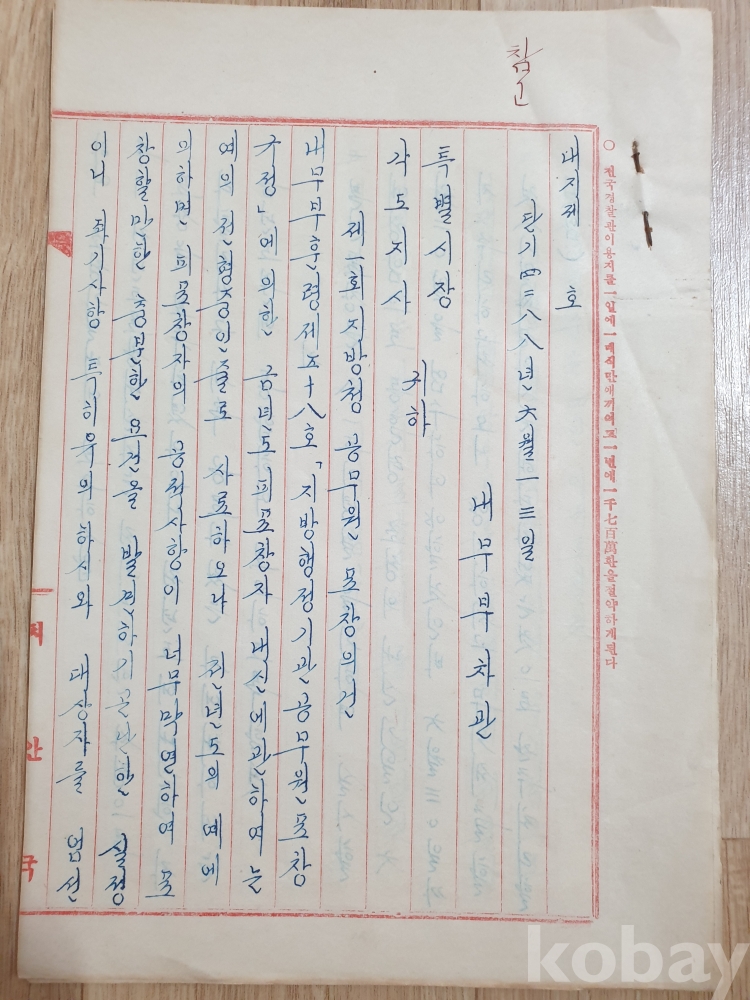 참고
○ 전국경찰관이용지를一일에一매식만애끼여도一년에一千七百萬환을절약하게된다
내지제 호
단기四二八八년六월一三일
내무부차관
특별시장
각도지사
귀하
제一회지방청공무원표창의건
내무부훈령제五十八호「지방행정기관공무원표창
규정」에의한 금년도피표창자 내신에관하여는
예의 전형중인줄로 사료하오나 전년도의 예에
의하면 피표창자의 공적사항이 너무막연하여 표
창할만한 충분한 요건을 발견하기곤난한 실정
이니 좌기사항 특히유의하시와 대상자를 엄선
치 안 국
kobay